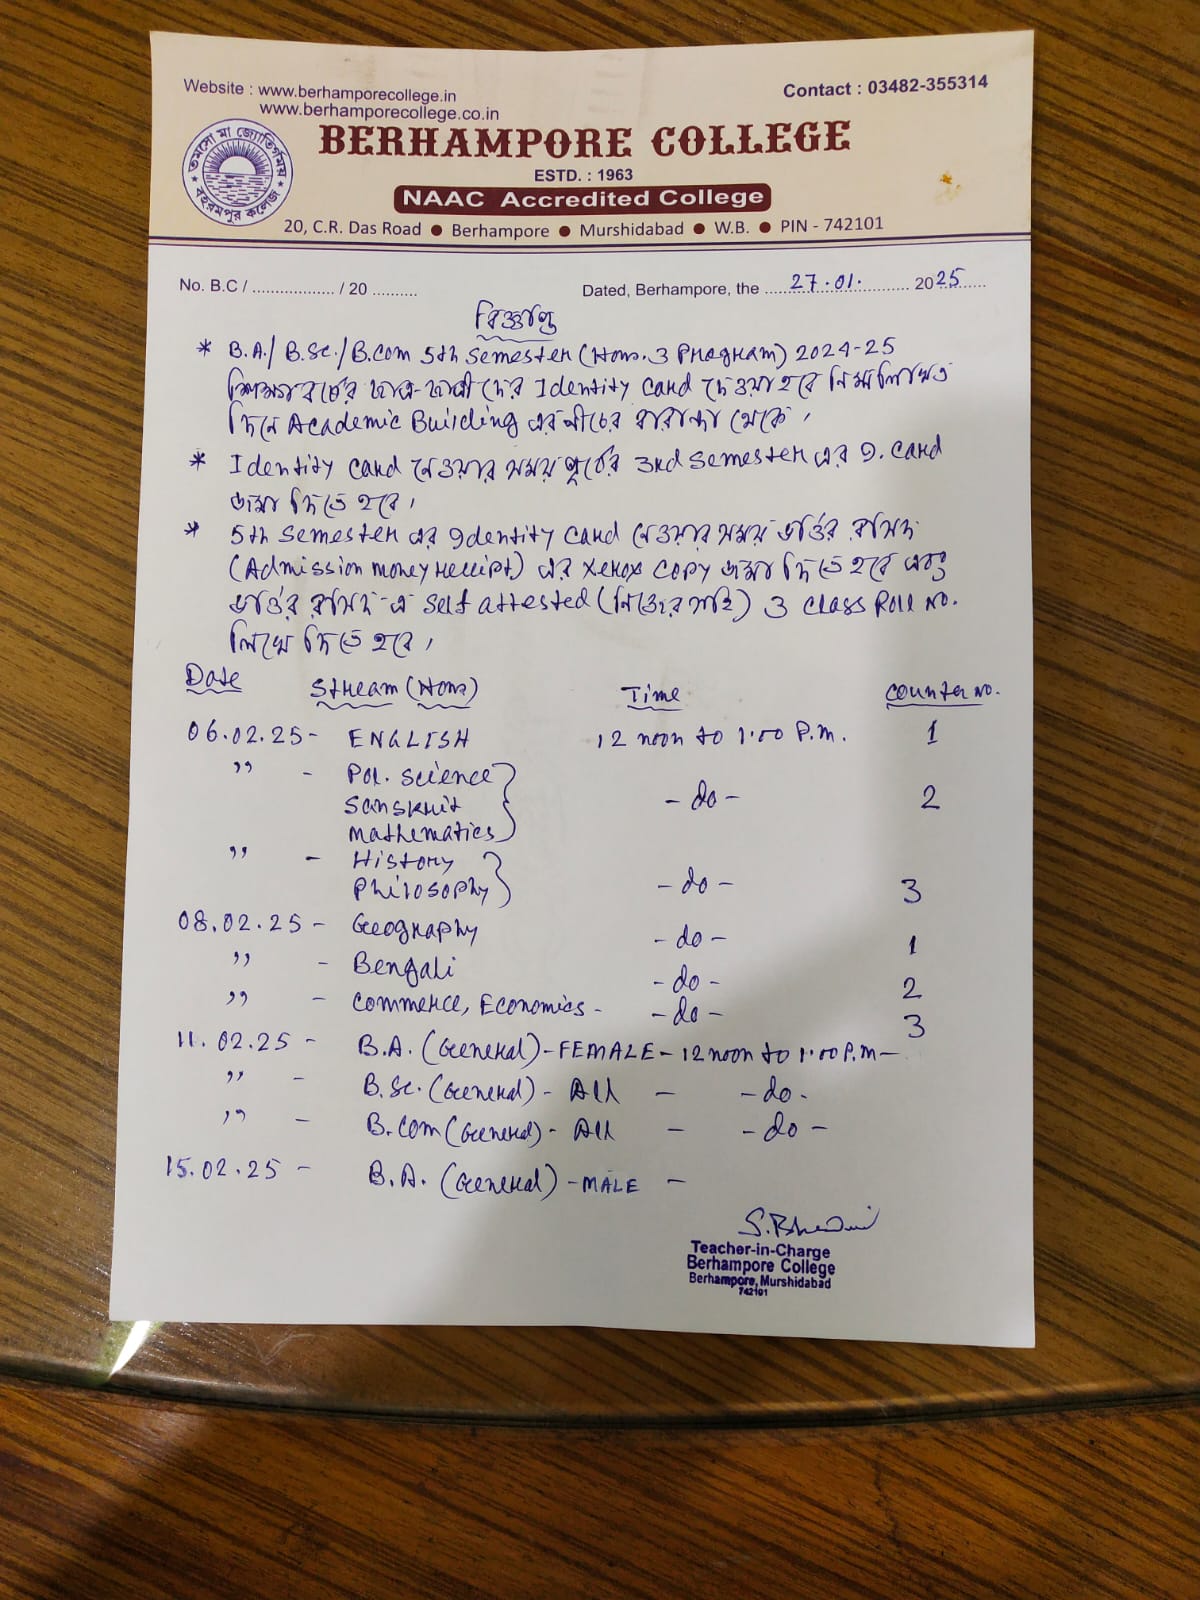 Website : www.berhamporecollege.in
www.berhamporecollege.co.in
Contact : 03482-355314
তমসো মা জ্যোতির্গময়
বহরমপুর কলেজ
BERHAMPORE COLLEGE
ESTD. : 1963
NAAC Accredited College
20, C.R. Das Road ● Berhampore ● Murshidabad ● W.B. ● PIN - 742101
No. B.C / .................. / 20 ..........
Dated, Berhampore, the ...... 27.01. .......... 2025......
বিজ্ঞপ্তি
* B.A./ B.Sc./B.Com 5th Semester (Hons. ও Program) 2024-25
শিক্ষাবর্ষের ছাত্র-ছাত্রীদের Identity Card দেওয়া হবে নিম্নলিখিত
দিনে Academic Building এর নীচের বারান্দা থেকে।
* Identity Card নেওয়ার সময় পূর্বের 3rd Semester এর I. Card
জমা দিতে হবে।
* 5th Semester এর Identity Card নেওয়ার সময় ভর্তির রসিদ
(Admission money receipt) এর Xerox Copy জমা দিতে হবে এবং
ভর্তির রসিদ-এ Self attested (নিজের সই) ও Class Roll No.
লিখে দিতে হবে।
Date Stream (Hons) Time Counter No.
06.02.25 - ENGLISH 12 noon to 1.00 P.M. 1
" - Pol. Science
Sanskrit - do - 2
Mathematics
" - History
Philosophy - do - 3
08.02.25 - Geography - do - 1
" - Bengali - do - 2
" - Commerce, Economics - - do - 3
11.02.25 - B.A. (General) - FEMALE - 12 noon to 1.00 P.M -
" - B.Sc. (General) - All - - do -
" - B.Com (General) - All - - do -
15.02.25 - B.A. (General) - MALE -
Teacher-in-Charge
Berhampore College
Berhampore, Murshidabad
742101